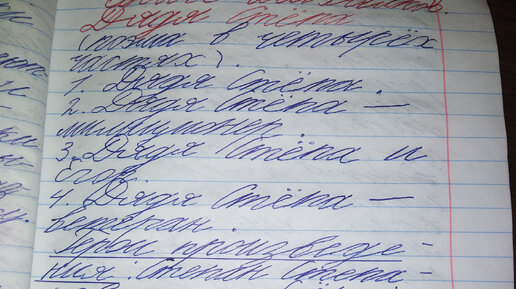 Дядя Стёпа
(поэма в четырёх
частях).
1. Дядя Стёпа.
2. Дядя Стёпа —
милиционер.
3. Дядя Стёпа и
Егор.
4. Дядя Стёпа —
ветеран.
Герои произведе-
ния: Степан Степа-